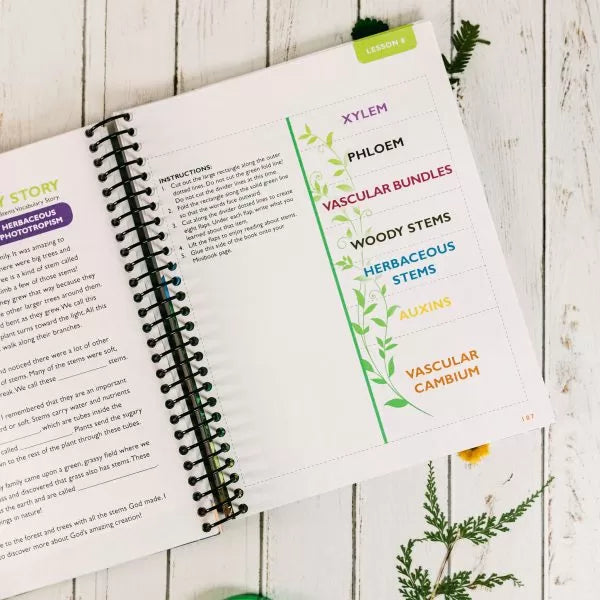 Y STORY
Stems Vocabulary Story
HERBACEOUS
PHOTOTROPISM
mily. It was amazing to
here were big trees and
ree is a kind of stem called
limb a few of those stems!
they grew that way because they
e other larger trees around them.
d bent as they grew. We call this
plant turns toward the light. All this
walk along their branches.
nd noticed there were a lot of other
of stems. Many of the stems were soft,
reak. We call these ____________ stems.
I remembered that they are an important
ard or soft. Stems carry water and nutrients
called ____________, which are tubes inside the
____________. Plants send the sugary
wn to the rest of the plant through these tubes.
y family came upon a green, grassy field where we
ss and discovered that grass also has stems. These
s the earth and are called ____________
ings in nature!
e to the forest and trees with all the stems God made. I
o discover more about God's amazing creation!
LESSON 8
INSTRUCTIONS:
1. Cut out the large rectangle along the outer
dotted lines. Do not cut the green fold line!
Do not cut the divider lines at this time.
2. Fold the rectangle along the solid green line
so that the words face outward.
3. Cut along the divider dotted lines to create
eight flaps. Under each flap, write what you
learned about that item.
4. Lift the flaps to enjoy reading about stems.
5. Glue this side of the book onto your
Minibook page.
XYLEM
PHLOEM
VASCULAR BUNDLES
WOODY STEMS
HERBACEOUS
STEMS
AUXINS
VASCULAR
CAMBIUM
187